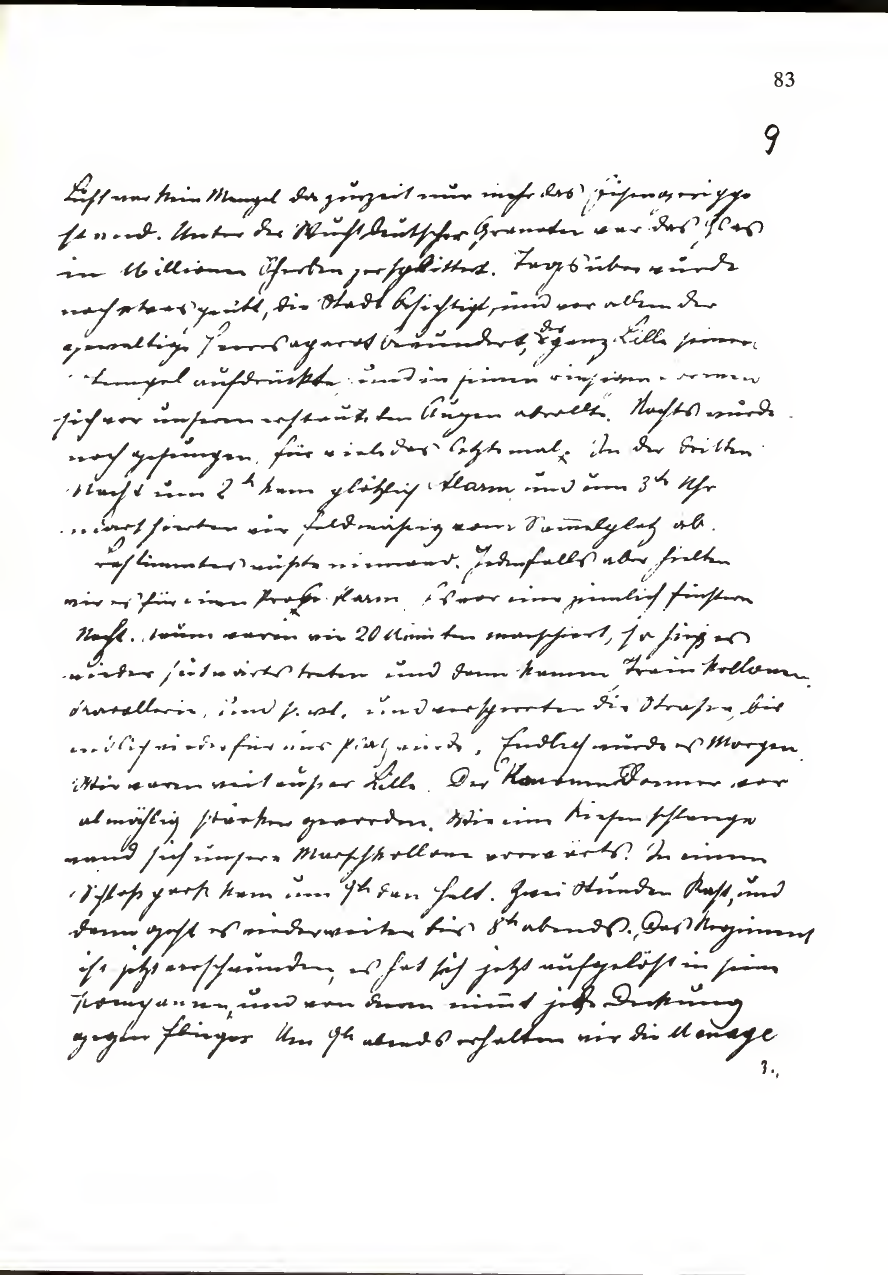 83
9
Luft war kein Mangel da zurzeit nur mehr das Eisengerippe
stand. Unter der Wucht deutscher Granaten war das Glas
in Millionen Scherben zersplittert. Tagsüber wurde
noch etwas geübt, die Stadt besichtigt, und vor allem der
gewaltige Heeresaparat bewundert, der ganz Lille seinen
Stempel aufdrückte, und in seinen Formen
sich vor unseren erstaunten Augen abrollte. Nachts wurde
noch gesungen, für viele das letztemal. In der dritten
Nacht um 2 h kam plötzlich Alarm und um 3 h Uhr
marschierten wir feldmäßig vom Sammelplatz ab.
Bestimmtes wußte niemand. Jedenfalls aber hielten
wir es für einen Probe Alarm. Es war eine ziemlich finstere
Nacht. Kaum waren wir 20 Minuten marschiert, so hieß es
wieder seitwärts treten und dann kamen Train Kollonen,
Kavallerie, und s. w. und versperrten die Straße, bis
endlich wieder für uns Platz wurde. Endlich wurde es Morgen.
Wir waren weit außer Lille. Der Kanonen Donner war
almählig stärker geworden. Wie eine Riesenschlange
wand sich unsere Marschkollone vorwärts. In einem
Schloßpark kam um 9 h der Halt. Zwei Stunden Rast, und
dann geht es wieder weiter bis 8 h abends. Das Regiment
ist jetzt verschwunden, es hat sich jetzt aufgelöst in seine
Kompanien, und von denen nimmt jede Deckung
gegen Flieger. Um 9 h abends erhalten wir die Menage
3.,